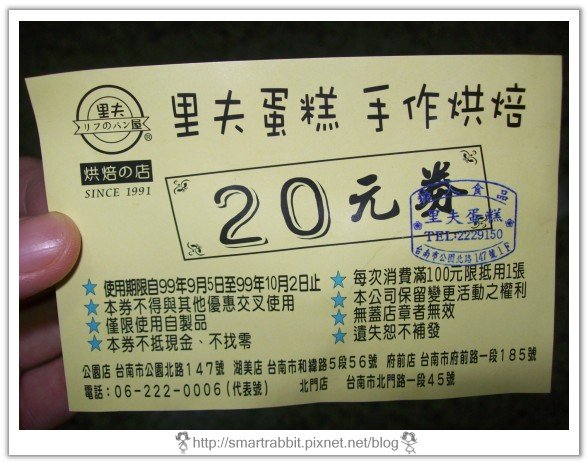 里夫
リフのパン屋
®
烘焙の店
SINCE 1991
里夫蛋糕 手作烘焙
20元券
食品
里夫蛋糕
TEL:2229150
台南市公園北路147號1F
★ 使用期限自99年9月5日至99年10月2日止
★ 本券不得與其他優惠交叉使用
★ 僅限使用自製品
★ 本券不抵現金、不找零
★ 每次消費滿100元限抵用1張
★ 本公司保留變更活動之權利
★ 無蓋店章者無效
★ 遺失恕不補發
公園店 台南市公園北路147號 湖美店 台南市和緯路5段56號 府前店 台南市府前路一段185號
電話：06-222-0006(代表號) 北門店 台南市北門路一段45號
http://smartrabbit.pixnet.net/blog